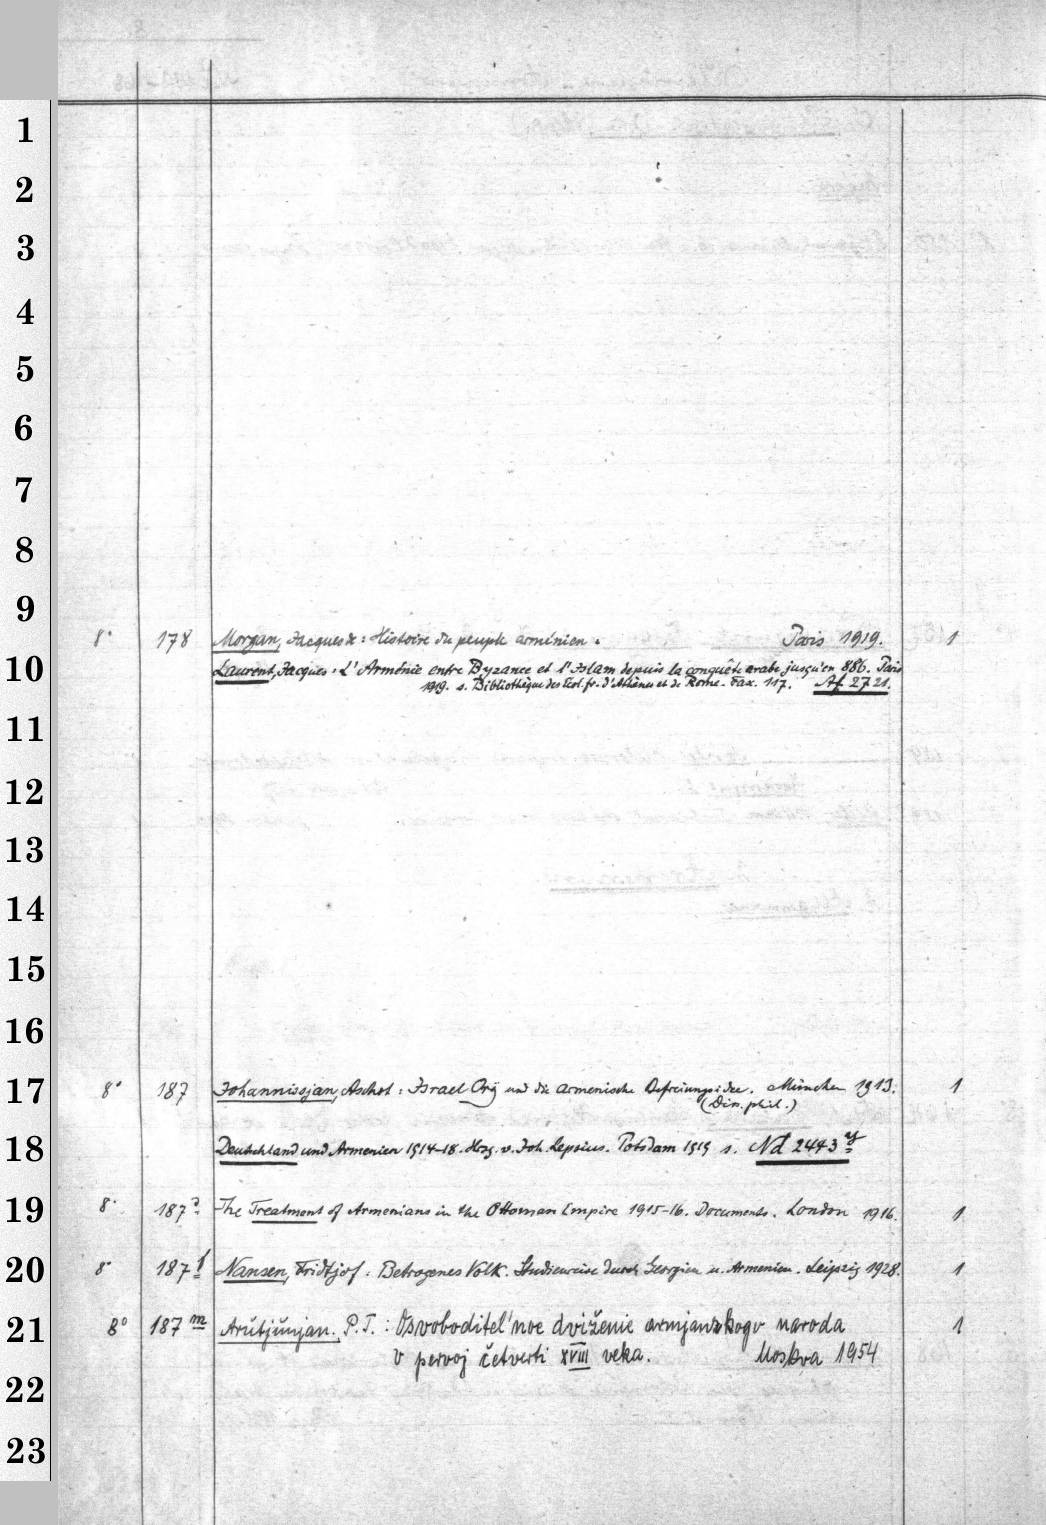 1
2
3
4
5
6
7
8
9
8° 178 Morgan, Jacques de: Histoire du peuple arménien. Paris 1919. 1
10 Laurent, Jacques: L'Arménie entre Byzance et l'Islam depuis la conquête arabe jusqu'en 886. Paris
1919. s. Bibliothèque des Ecol. fr. d'Athènes et de Rome. Fasc. 117. Af 2721.
11
12
13
14
15
16
17 8° 187 Johannissjan, Aschot: Israel Ory und die armenische Befreiungsidee. München 1913. 1
(Diss. phil.)
18 Deutschland und Armenien 1914-18. Hrsg. v. Joh. Lepsius. Potsdam 1919 s. Nd 2443 y
19 8° 187 a The Treatment of Armenians in the Ottoman Empire 1915-16. Documents. London 1916. 1
20 8° 187 f Nansen, Fridtjof. Betrogenes Volk. Studienreise durch Georgien u. Armenien. Leipzig 1928. 1
21 8° 187 m Arutjunjan. P.T.: Osvoboditel'noe dviženie armjanskogo naroda 1
v pervoj četverti XVIII veka. Moskva 1954
22
23